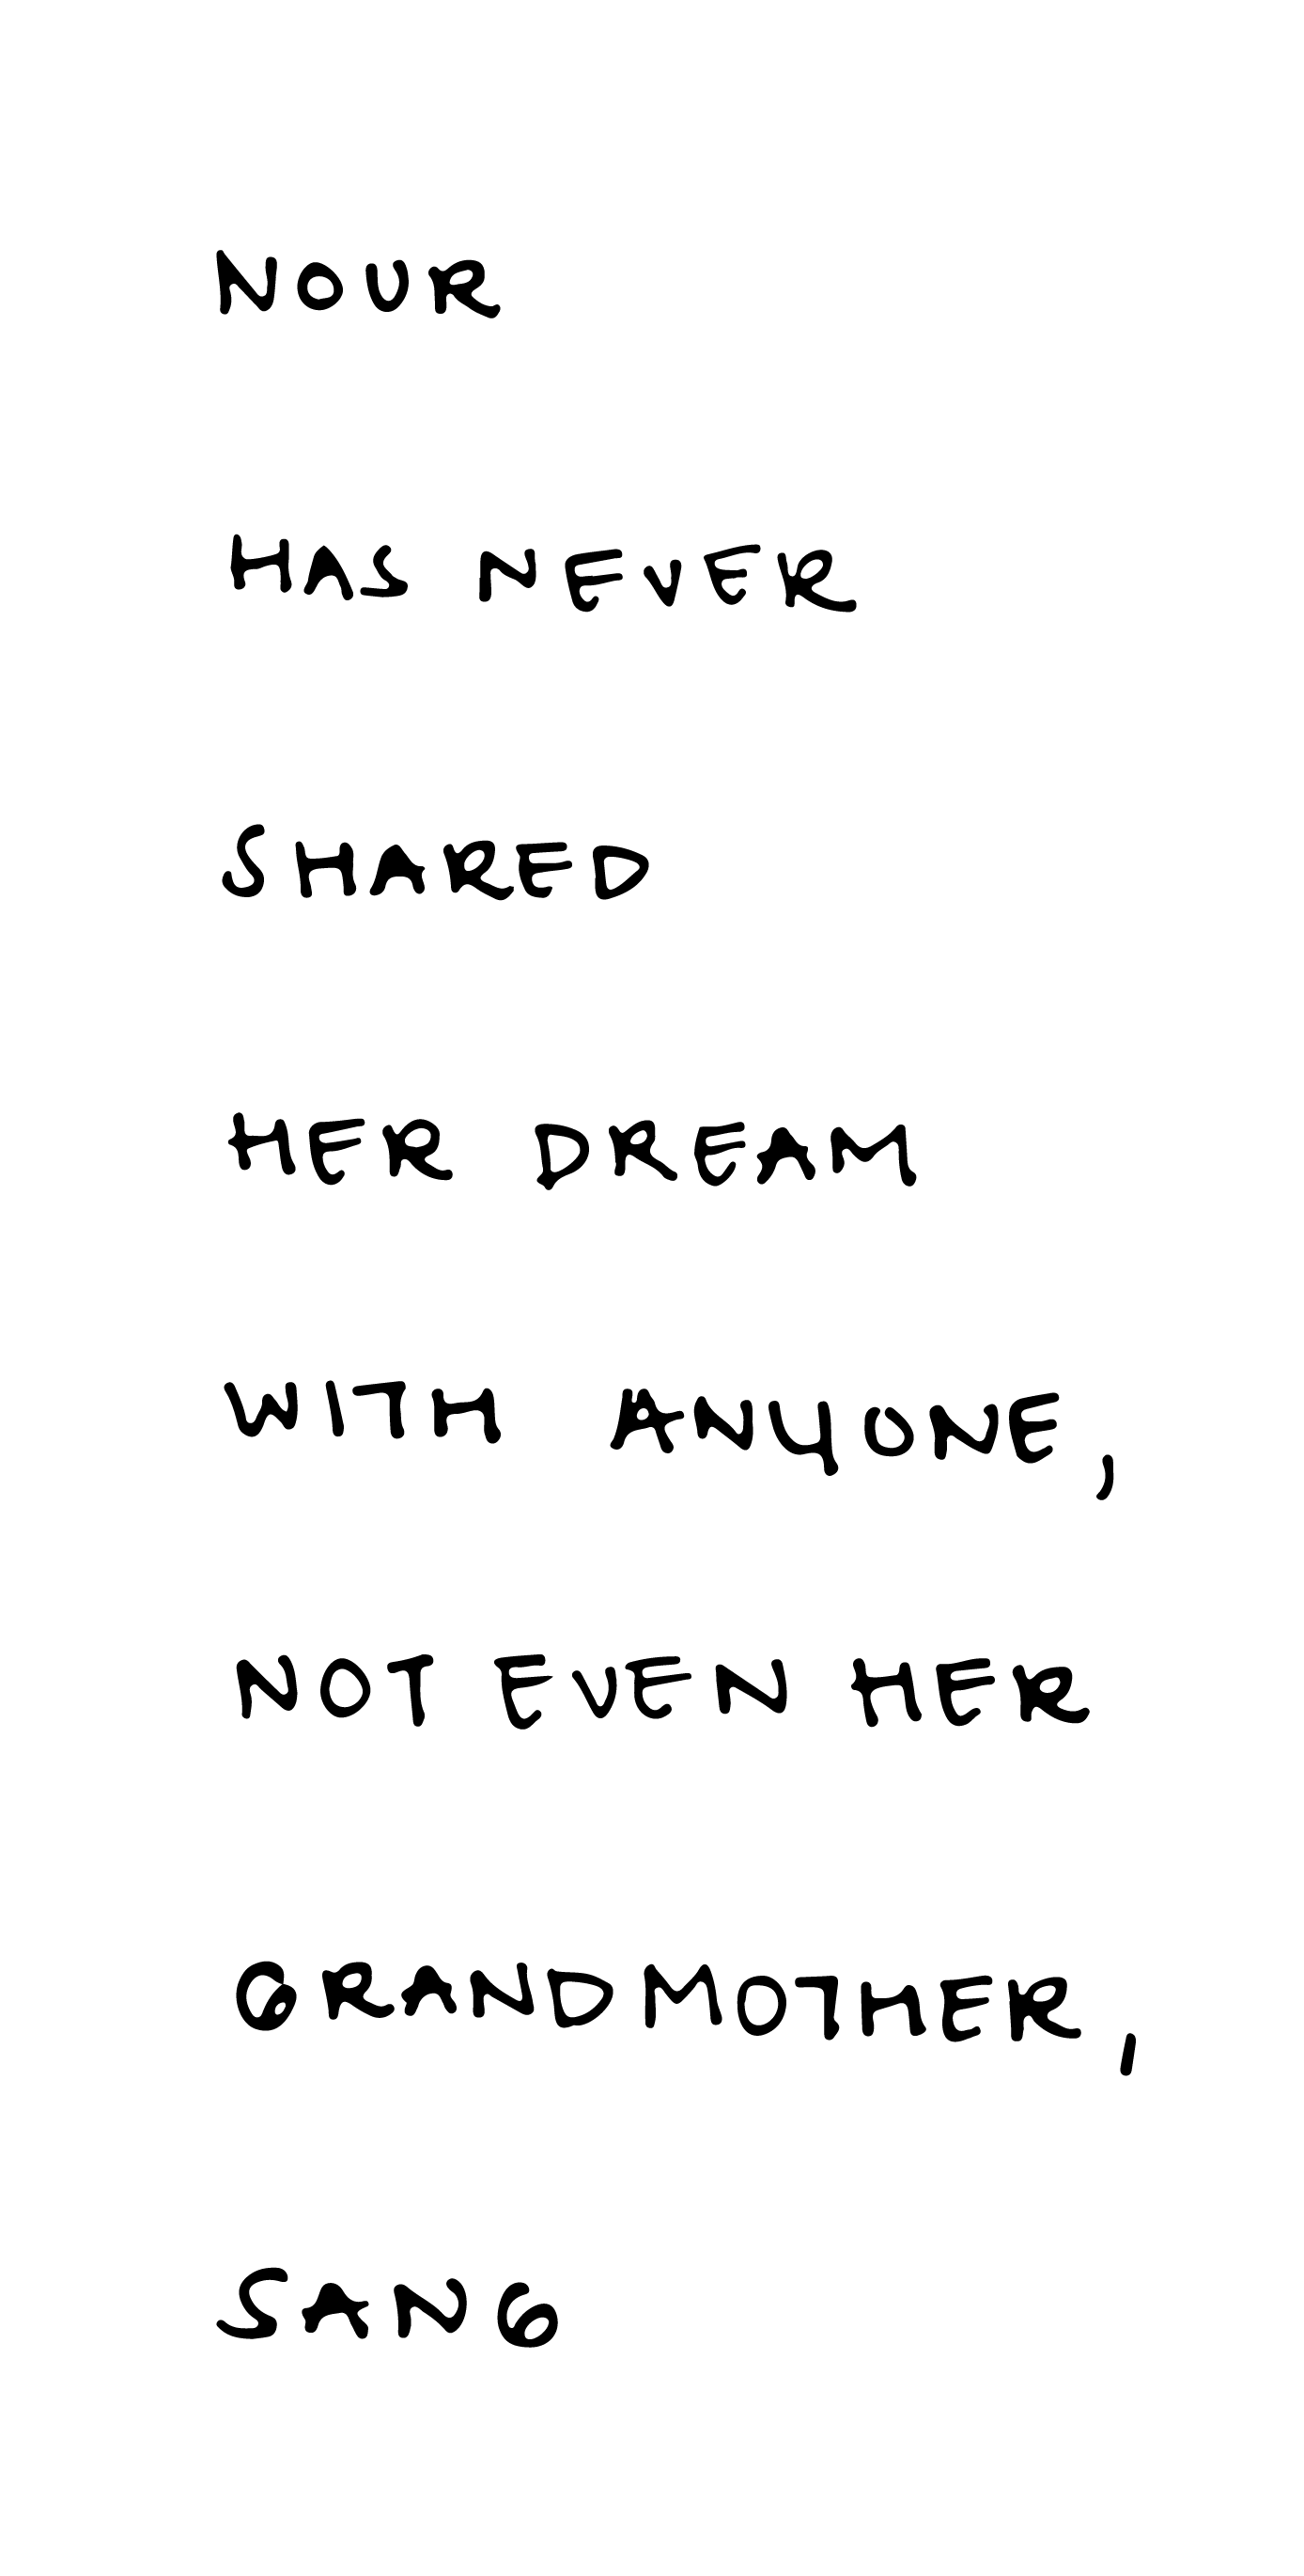 NOUR
HAS NEVER
SHARED
HER DREAM
WITH ANYONE,
NOT EVEN HER
GRANDMOTHER,
SANG